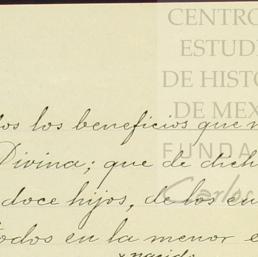 CENTRO
ESTUDI
DE HISTO
DE MEX
FUNDA
Carlos
los los beneficios que
Divina; que de dich
doce hijos, de los cu
todos en la menor e
nacido